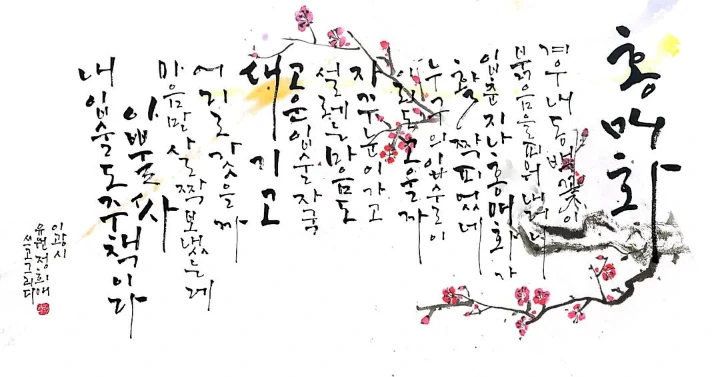 홍매화
겨우내 동백꽃이
붉음을 피워내더니
입춘 지나 홍매화가
활짝 피었네
누구의 입술로이
이리도 고울까
자꾸 눈이 가고
설레는 마음도
고운 입술 자국
새기고
어디로 갔을까
마음만 살짝 보냈는데
이뿔사
내 입술도 주책이다
이광시
유원 정희애
쓰고그리다